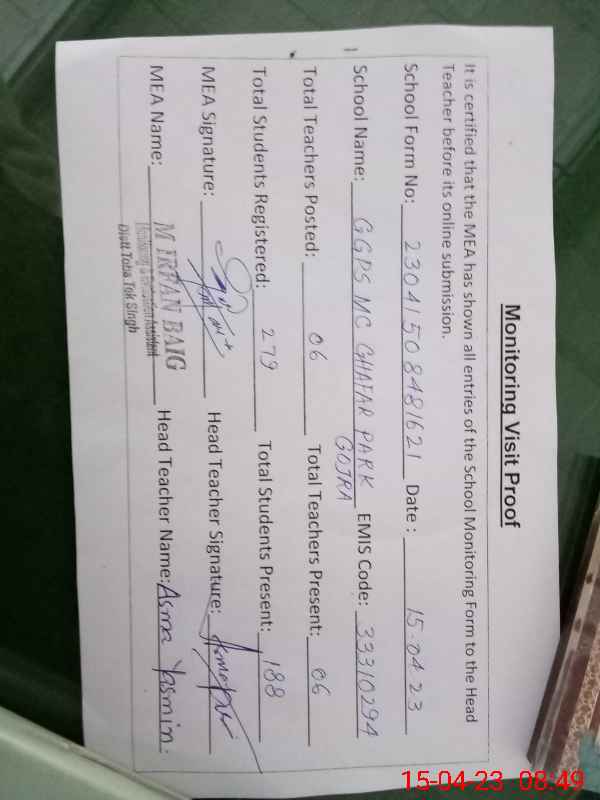 Monitoring Visit Proof
It is certified that the MEA has shown all entries of the School Monitoring Form to the Head
Teacher before its online submission.
School Form No: 23041508481621 Date : 15.04.23
School Name: GGPS MC GHAFAR PARK EMIS Code: 33310294
GOJRA
Total Teachers Posted: 06 Total Teachers Present: 06
Total Students Registered: 279 Total Students Present: 188
MEA Signature: Head Teacher Signature:
MEA Name: M IRFAN BAIG Head Teacher Name: Asma Yasmin.
Monitoring & Evaluation Assistant
Distt Toba Tek Singh
15-04-23 08:49